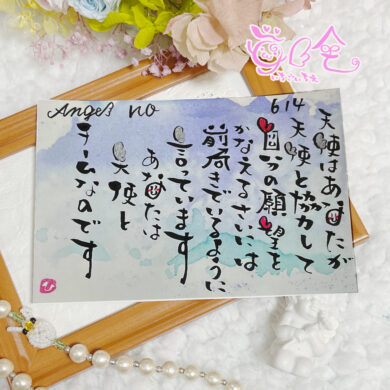 Angel no
614
天使はあなたが
天使と協力して
自分の願望を
かなえるさいには
前向きでいるように
言っています
あなたは
天使と
チームなのです
ひ